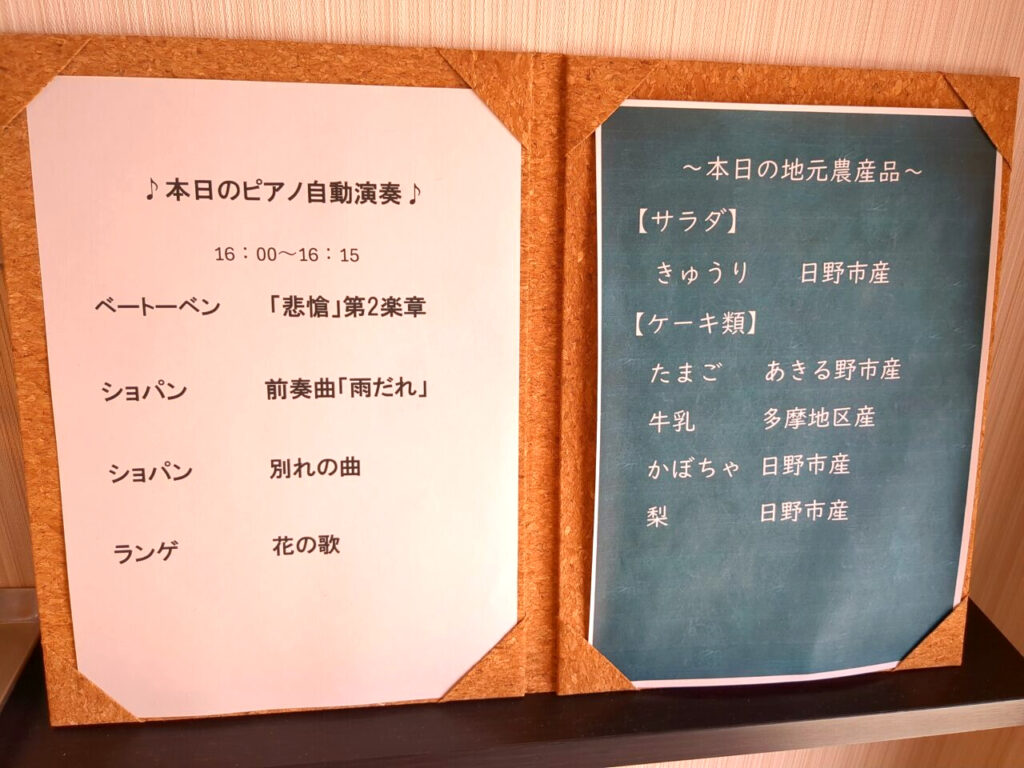 ♪本日のピアノ自動演奏♪
16：00～16：15
ベートーベン 「悲愴」第2楽章
ショパン 前奏曲「雨だれ」
ショパン 別れの曲
ランゲ 花の歌
～本日の地元農産品～
【サラダ】
きゅうり 日野市産
【ケーキ類】
たまご あきる野市産
牛乳 多摩地区産
かぼちゃ 日野市産
梨 日野市産